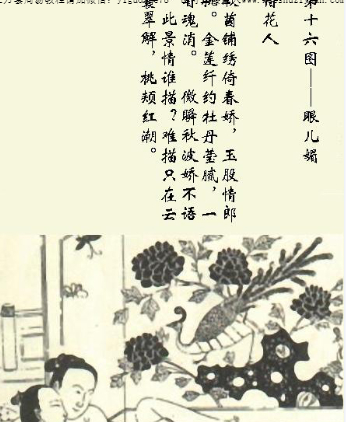 第十六图——眼儿媚
花人
茵铺绣倚春娇，玉股情郎
。金莲纤约牡丹莹腻，一
魂消。　微瞬秋波娇不语
此景情谁描？难描只在云
翠解，桃颊红潮。